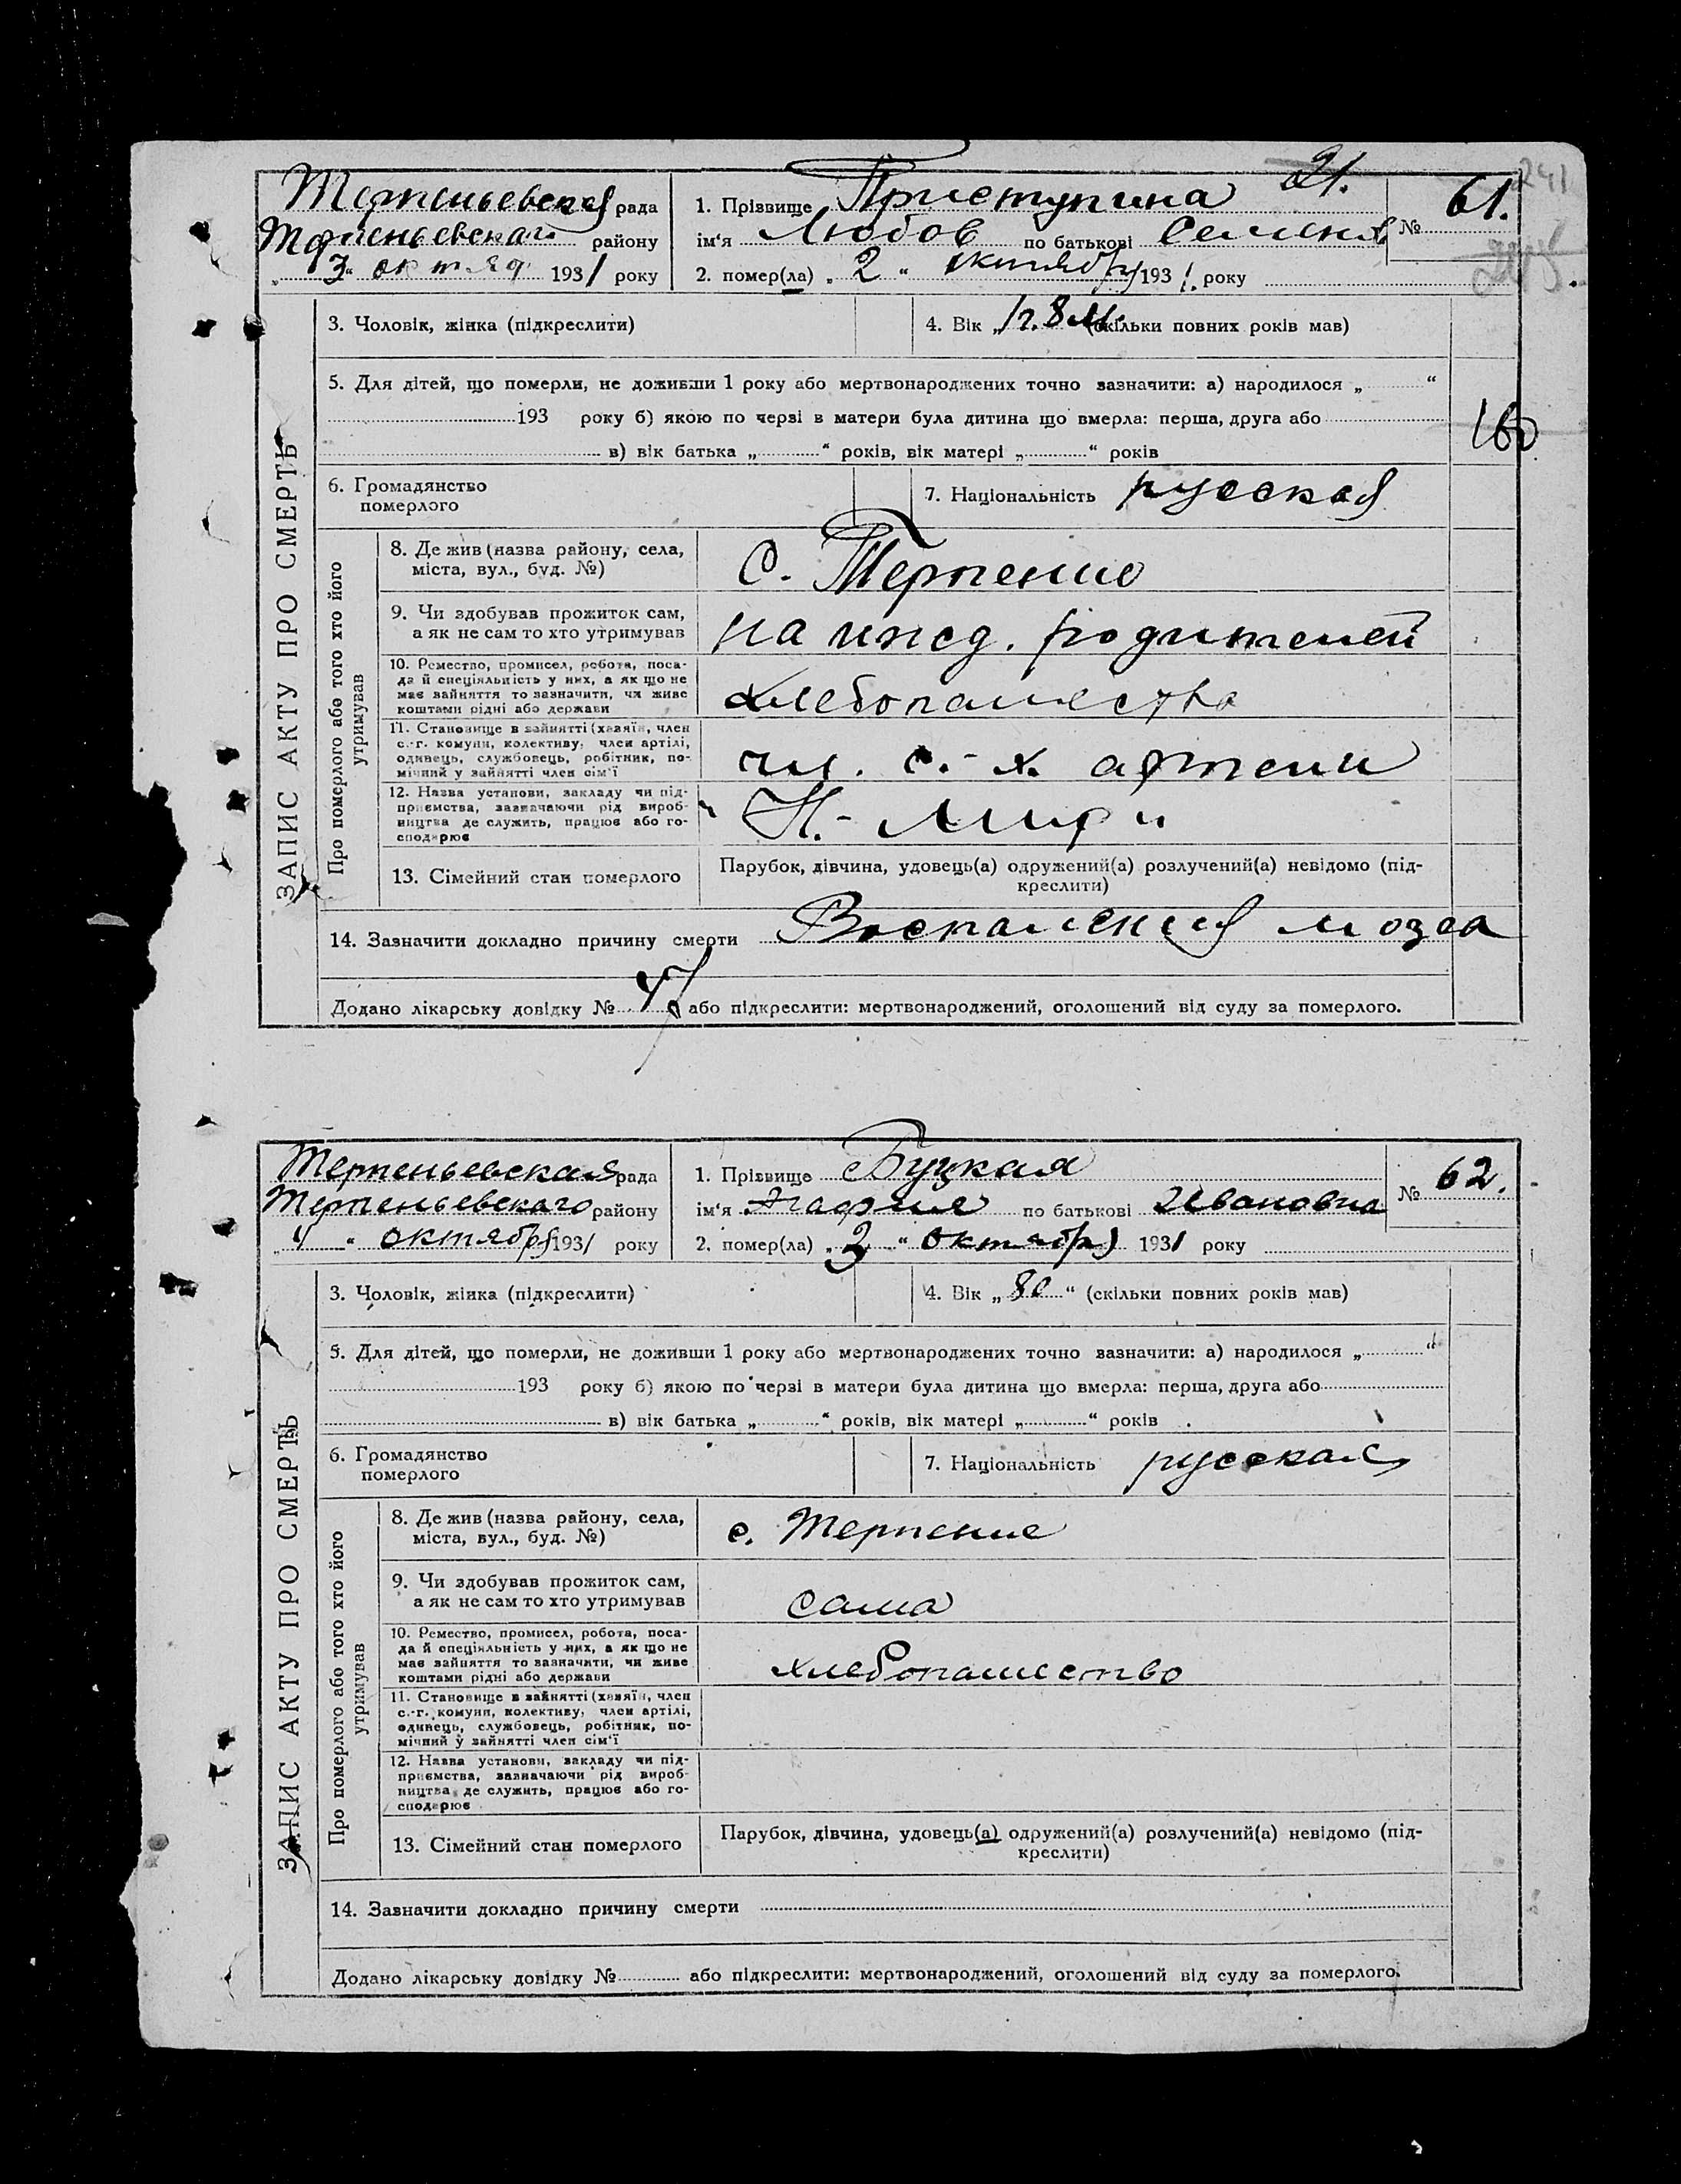 241
21.
Терпеньевская рада
1. Прізвище Приступина
№ 61.
Терпеньевскаго району
ім'я Любов по батькові Семенов
„ 3 “ октяб 1931 року
2. помер(ла) „ 2 “ октября 1931. року
3. Чоловік, жінка (підкреслити)
4. Вік „ 1 г. 8 м. (скільки повних років мав)
5. Для дітей, що померли, не доживши 1 року або мертвонароджених точно зазначити: а) народилося „ “
193 року б) якою по черзі в матери була дитина що вмерла: перша, друга або
в) вік батька „ “ років, вік матері „ “ років
160
6. Громадянство
померлого
7. Національність русская
ЗАПИС АКТУ ПРО СМЕРТЬ
Про померлого або того хто його
утримував
8. Де жив (назва району, села,
міста, вул., буд. №)
с. Терпение
9. Чи здобував прожиток сам,
а як не сам то хто утримував
на ижед. родителей
10. Ремество, промисел, робота, поса-
да й спеціяльність у них, а як що не
має зайняття то зазначити, чи живе
коштами рідні або держави
хлебопашества
11. Становище в зайнятті (хазяїн, член
с.-г. комуни, колективу, член артілі,
одинець, службовець, робітник, по-
мічний у зайнятті член сім'ї
чл. с.-х. артели
12. Назва установи, закладу чи під-
приємства, зазначаючи рід вироб-
ництва де служить, працює або го-
сподарює
Н.-
13. Сімейний стан померлого
Парубок, дівчина, удовець(а) одружений(а) розлучений(а) невідомо (під-
креслити)
14. Зазначити докладно причину смерти Воспаления мозга
Додано лікарську довідку № або підкреслити: мертвонароджений, оголошений від суду за померлого.
Терпеньевская рада
1. Прізвище Буцкая
№ 62.
Терпеньевскаго району
ім'я Агафия по батькові Ивановна
„ 4 “ октября 1931 року
2. помер(ла) „ 3 “ октября 1931 року
3. Чоловік, жінка (підкреслити)
4. Вік „ 80 “ (скільки повних років мав)
5. Для дітей, що померли, не доживши 1 року або мертвонароджених точно зазначити: а) народилося „ “
193 року б) якою по черзі в матери була дитина що вмерла: перша, друга або
в) вік батька „ “ років, вік матері „ “ років
6. Громадянство
померлого
7. Національність русская
ЗАПИС АКТУ ПРО СМЕРТЬ
Про померлого або того хто його
утримував
8. Де жив (назва району, села,
міста, вул., буд. №)
с. Терпение
9. Чи здобував прожиток сам,
а як не сам то хто утримував
сама
10. Ремество, промисел, робота, поса-
да й спеціяльність у них, а як що не
має зайняття то зазначити, чи живе
коштами рідні або держави
хлебопашество
11. Становище в зайнятті (хазяїн, член
с.-г. комуни, колективу, член артілі,
одинець, службовець, робітник, по-
мічний у зайнятті член сім'ї
12. Назва установи, закладу чи під-
приємства, зазначаючи рід вироб-
ництва де служить, працює або го-
сподарює
13. Сімейний стан померлого
Парубок, дівчина, удовець(а) одружений(а) розлучений(а) невідомо (під-
креслити)
14. Зазначити докладно причину смерти
Додано лікарську довідку № або підкреслити: мертвонароджений, оголошений від суду за померлого.